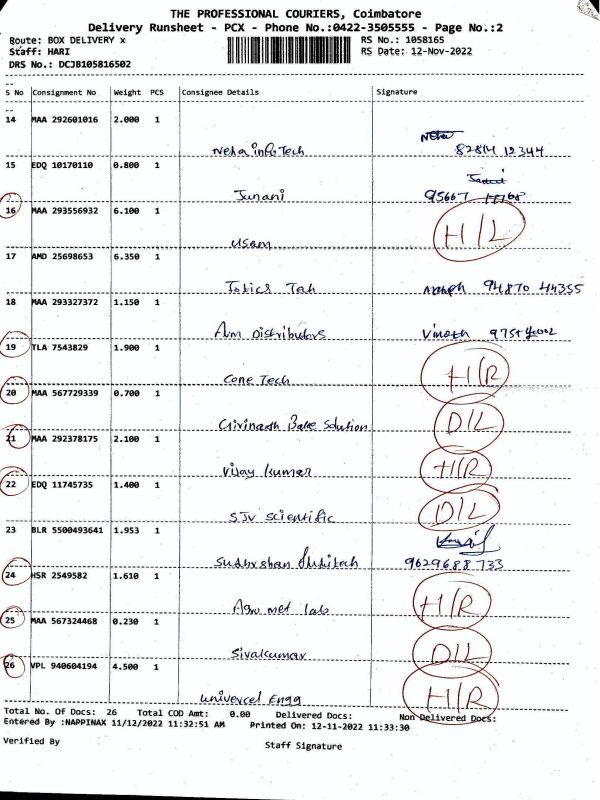 THE PROFESSIONAL COURIERS, Coimbatore
Delivery Runsheet - PCX - Phone No.:0422-3505555 - Page No.:2
Route: BOX DELIVERY x
RS No.: 1058165
Staff: HARI
RS Date: 12-Nov-2022
DRS No.: DCJB105816502
S No Consignment No Weight PCS Consignee Details Signature
14 MAA 292601016 2.000 1
Neha info Tech 82814 12344
15 EDQ 10170110 0.800 1
Junani 95667
16 MAA 293556932 6.100 1 H/L
Usam
17 AMD 25698653 6.350 1
Tah 94870 44355
18 MAA 293327372 1.150 1
Distributors Vinoth
19 TLA 7543829 1.900 1 H/R
Cone Tech
20 MAA 567729339 0.700 1 D/L
Solution
21 MAA 292378175 2.100 1 H/R
Vijay kumar
22 EDQ 11745735 1.400 1 D/L
SJV Scientific
23 BLR 5500493641 1.953 1
9629688733
24 HSR 2549582 1.610 1 H/R
Agro met lab
25 MAA 567324468 0.230 1 D/L
Sivakumar
26 VPL 940604194 4.500 1 H/R
Univercel Engg
Total No. Of Docs: 26 Total COD Amt: 0.00 Delivered Docs: Non Delivered Docs:
Entered By :NAPPINAX 11/12/2022 11:32:51 AM Printed On: 12-11-2022 11:33:30
Verified By
Staff Signature